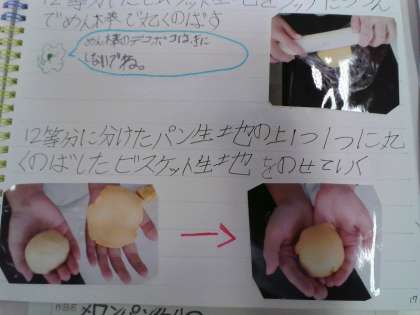 12等分したビスケット生地をラップにつつん
でめん棒でまるくのばす
めん棒のデコボコはきに
しないでね。
12等分に分けたパン生地の上1つ1つに丸
くのばしたビスケット生地をのせていく
メロンパン
17